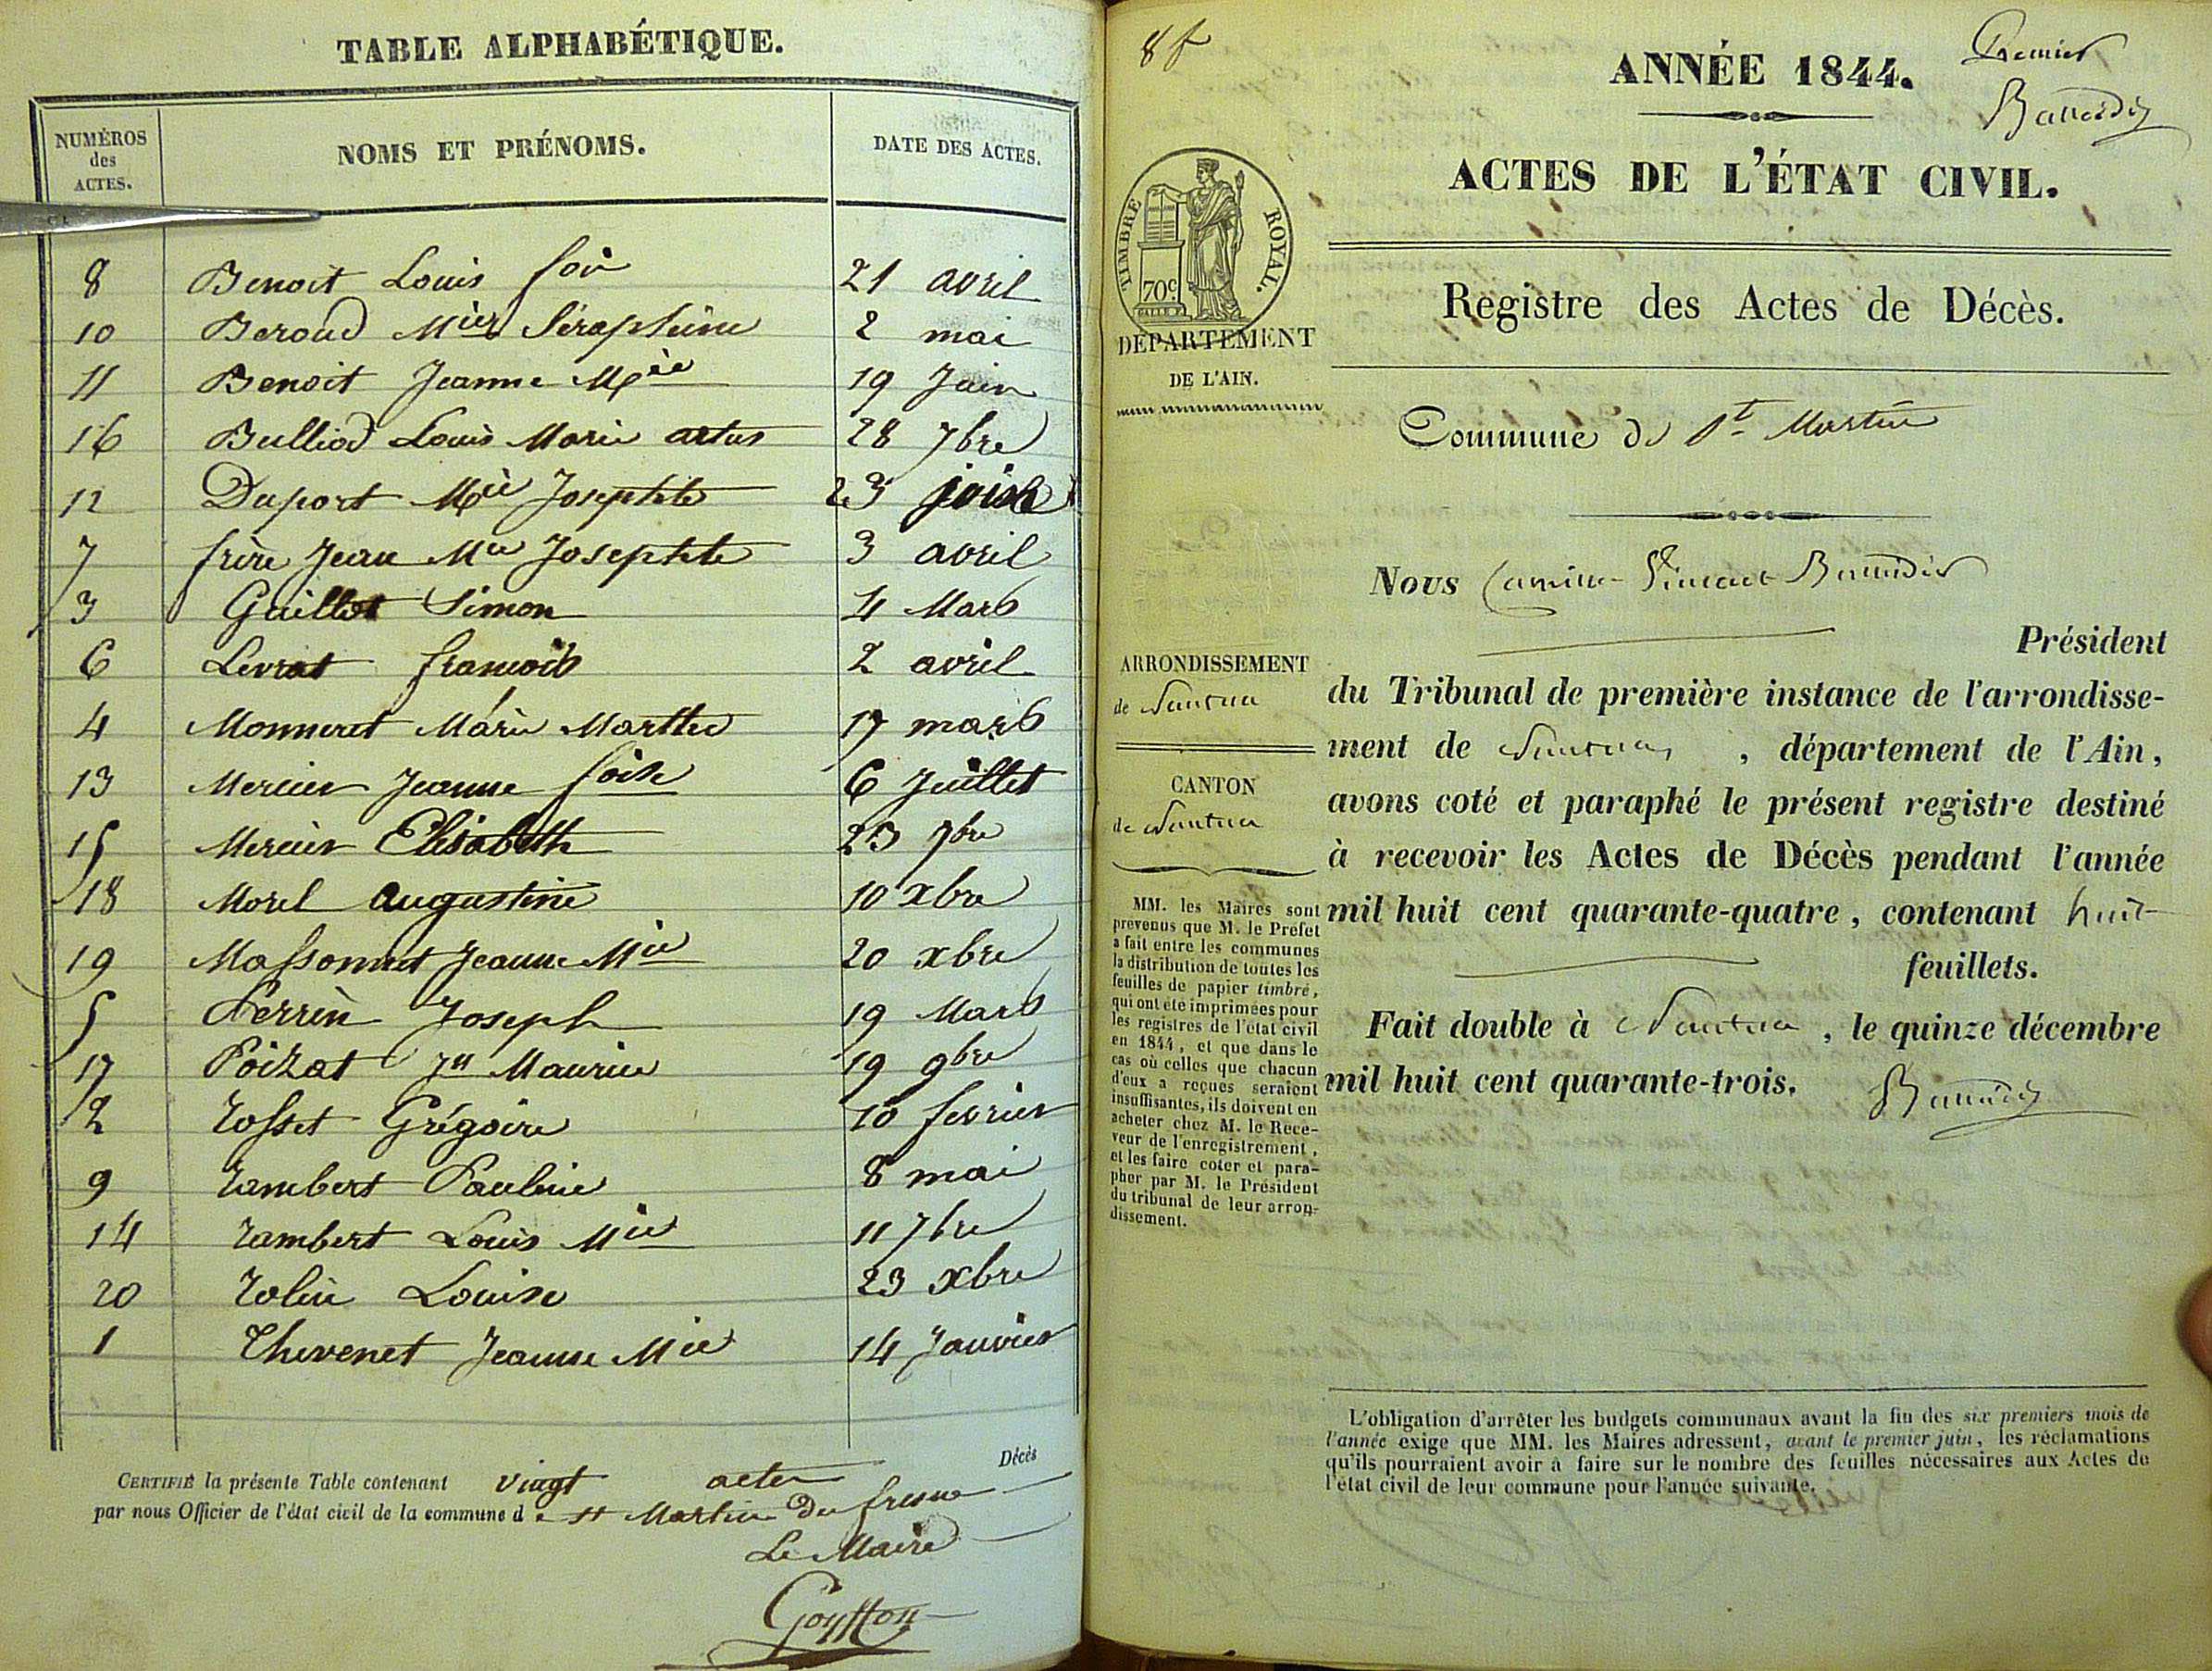 TABLE ALPHABÉTIQUE.
NUMÉROS des ACTES. NOMS ET PRÉNOMS. DATE DES ACTES.
8 Benoit Louis fois 21 avril
10 Beroud Mie Séraphine 2 mai
11 Benoit Jeanne Mie 19 Juin
16 Bulliod Louis Marie artus 28 7bre
12 Duport Mie Josephte 23 juin
7 frère Jean Mie Josephte 3 avril
3 Guillot Simon 4 Mars
6 Levrat francois 2 avril
4 Monneret Marie Marthe 17 mars
13 Mercier Jeanne foise 6 Juillet
15 Mercier Elisabeth 23 7bre
18 Morel Augustine 10 xbre
19 Massonnet Jeanne Mie 20 xbre
5 Perrin Joseph 19 Mars
17 Poizat Jn Maurice 19 9bre
2 Rosset Grégoire 10 fevrier
9 Rambert Pauline 8 mai
14 Rambert Louis Mie 11 7bre
20 Rolin Louise 23 xbre
1 Thevenet Jeanne Mie 14 Janvier
Décès
CERTIFIÉ la présente Table contenant vingt actes
par nous Officier de l'état civil de la commune de st Martin du fresne
Le Maire
8 f
Premier
ANNÉE 1844.
ACTES DE L'ÉTAT CIVIL.
TIMBRE ROYAL.
70c.
DÉPARTEMENT
DE L'AIN.
Registre des Actes de Décès.
Commune de St Martin
Nous Camille
Président
ARRONDISSEMENT
de Nantua
CANTON
de Nantua
du Tribunal de première instance de l'arrondisse-
ment de Nantua, département de l'Ain,
avons coté et paraphé le présent registre destiné
à recevoir les Actes de Décès pendant l'année
mil huit cent quarante-quatre, contenant huit
feuillets.
Fait double à Nantua, le quinze décembre
mil huit cent quarante-trois.
MM. les Maires sont
prévenus que M. le Préfet
a fait entre les communes
la distribution de toutes les
feuilles de papier timbré,
qui ont été imprimées pour
les registres de l'état civil
en 1844, et que dans le
cas où celles que chacun
d'eux a reçues seraient
insuffisantes, ils doivent en
acheter chez M. le Rece-
veur de l'enregistrement,
et les faire coter et para-
pher par M. le Président
du tribunal de leur arron-
dissement.
L'obligation d'arrêter les budgets communaux avant la fin des six premiers mois de
l'année exige que MM. les Maires adressent, avant le premier juin, les réclamations
qu'ils pourraient avoir à faire sur le nombre des feuilles nécessaires aux Actes de
l'état civil de leur commune pour l'année suivante.